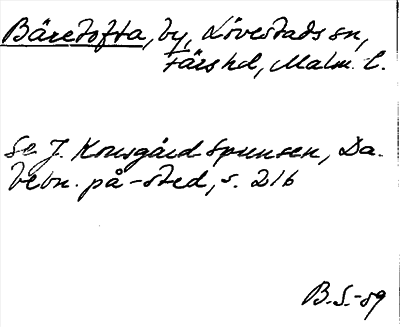 Bäretofta, by, Lövestads sn,
Färs hd, Malm. l.
Se J. Kousgård Sørensen, Da.
bebn. på -sted, s. 216
B.S.-89